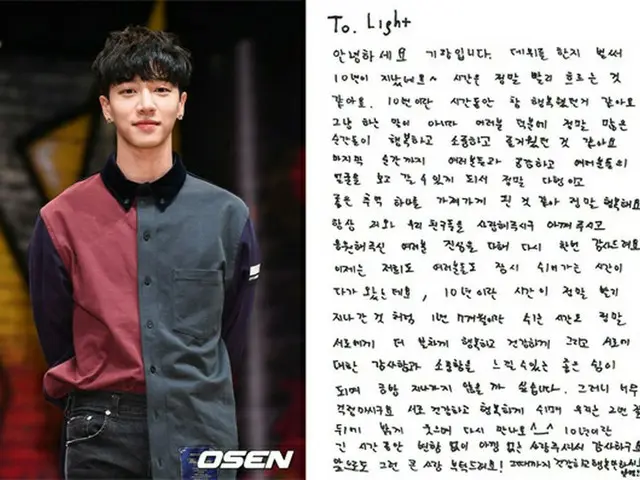 To. Light
안녕하세요 기광입니다. 데뷔를 한지 벌써
10년이 지났네요^ 시간은 정말 빨리 흐르는 것
같아요. 10년이란 시간동안 참 행복했던거 같아요
그냥 하는 말이 아니라 여러분 덕분에 정말 많은
순간들이 행복하고 소중하고 즐거웠던 것 같아요
마지막 순간까지 여러분들과 공감하고 여러분들의
얼굴을 보고 갈 수 있게 되서 정말 다행이고
좋은 추억 하나를 가져가게 된 것 같아 정말 행복해요
항상 저와 우리 친구들을 사랑해주시구 아껴주시고
응원해주신 여러분 진심을 다해 다시 한번 감사드려요
이제는 저희도 여러분들도 잠시 쉬어가는 시간이
다가 왔는데요, 10년이란 시간이 정말 빨리
지나간 것 처럼 1년 7개월이란 시간은 정말
서로에게 더 분하게 행복하고 건강하게 그리고 서로에
대한 감사함과 소중함을 느낄 수 있는 좋은 쉼이
되며 금방 지나가지 않을 까 싶습니다. 그러니 너무
걱정마시구요 서로 건강하고 행복하게 쉬며 우리는 2년 뒤
뒤에 밝게 웃으며 다시 만나요^_^ 10년이란
긴 시간 동안 변함 없이 아낌 없는 사랑주셔서 감사하구요
앞으로도 그런 큰 사랑 부탁드려요! 그때까지 건강하고 행복만하시
OSEN